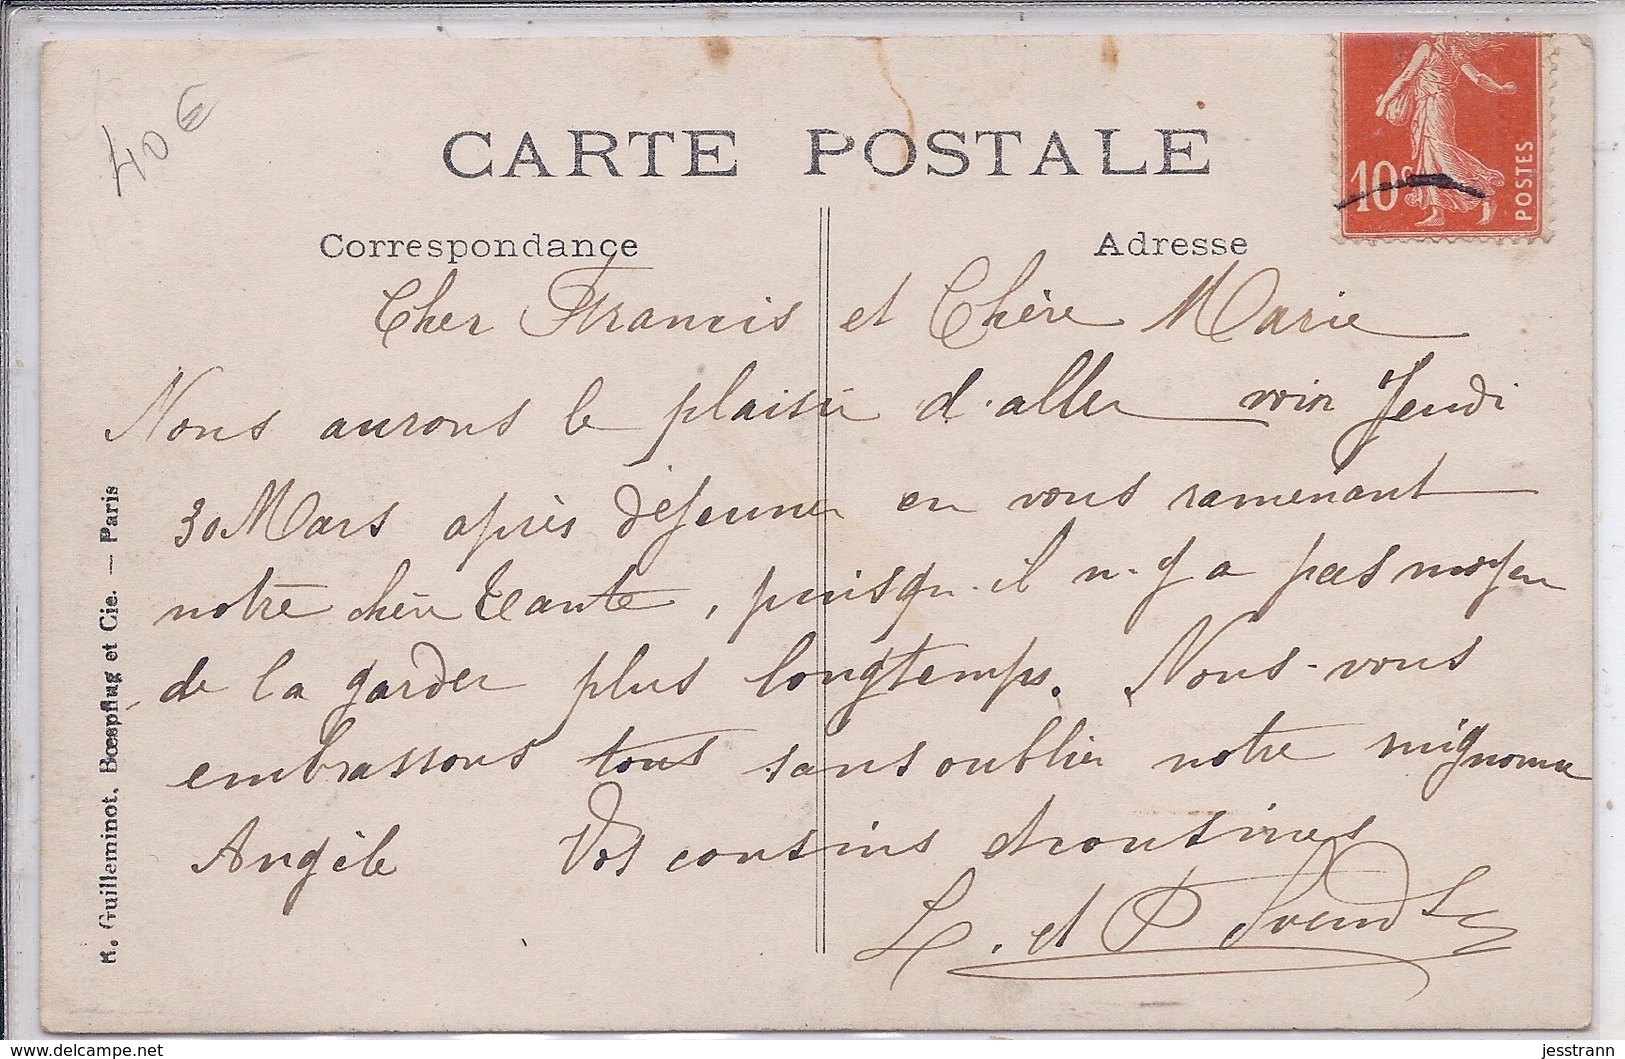 40 €
CARTE POSTALE
10c
POSTES
Correspondance
Adresse
Cher Francis et Chère Marie
Nous aurons le plaisir d'aller voir Jeudi
30 Mars après déjeuner en vous ramenant
notre chère Tante, puisqu'il n'y a pas moyen
de la garder plus longtemps. Nous vous
embrassons tous sans oublier notre mignonne
Angèle Vos cousins et cousines
L. et P.
R. Guilleminot, Bœspflug et Cie. — Paris
www.delcampe.net
jesstrann